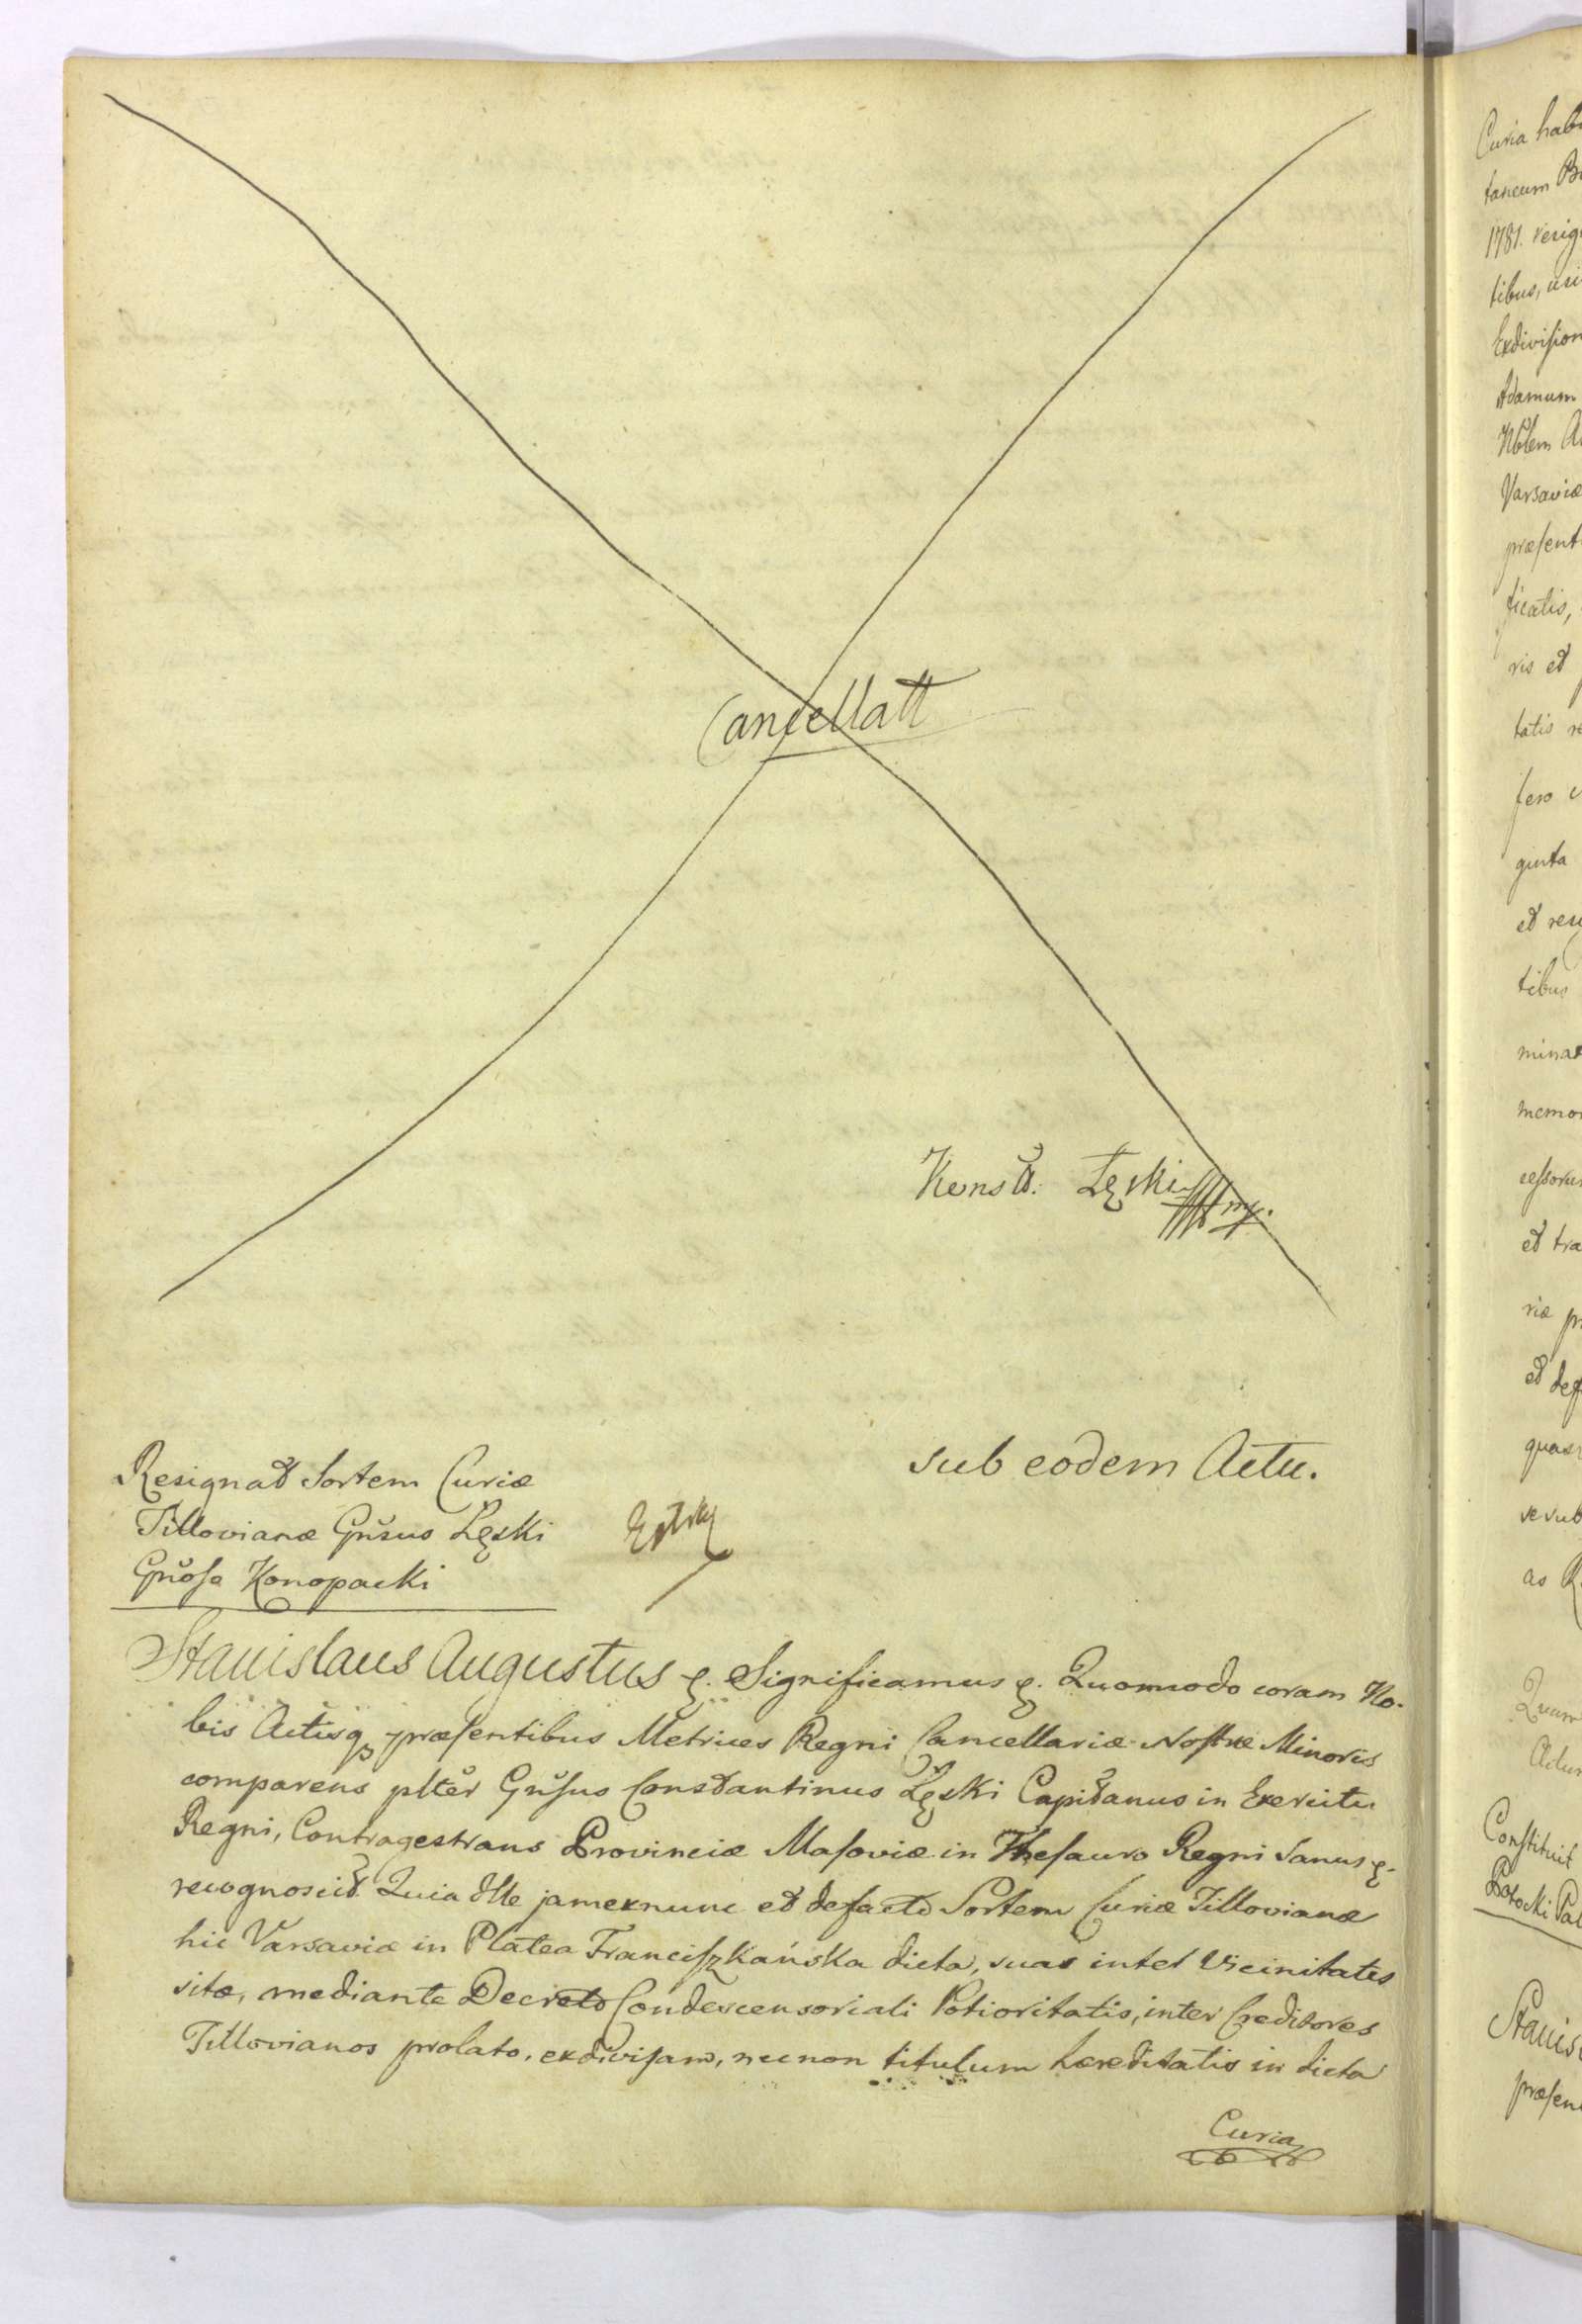 Cancellatt
Konstt. Łęski mp.
sub eodem Actu.
Resignat Sortem Curiæ
Tillovianæ Gnsus Łęski
Gnosæ Konopacki
Stanislaus Augustus &. Significamus &. Quomodo coram No-
bis Actisq præsentibus Metrices Regni Cancellariæ Nostræ Minoris
comparens plter Gnsus Constantinus Łęski Capitanus in Exercitu
Regni, Contragestrans Provinciæ Masoviæ in Thesauro Regni Sanus &.
recognoscit. Quia Ille jamexnunc et defacto Sortem Curiæ Tillovianæ
hic Varsaviæ in Platea Franciszkańska dicta, suas intet Vicinitates
sitæ, mediante Decreto Condescensoriali Potioritatis, inter Creditores
Tillovianos prolato, exdivisam, necnon titulum hæreditatis in dicta
Curia
Curia hab
taneum
1781. resig
tibus,
Exdivision
Adamum
Nblem
Varsaviæ
præsent
ficatis,
ris et
tatis
fero
ginta
et res
tibus
minar
memor
cessorum
et tra
riæ
et def
quas
se sub
as
Quam
Constituit
Potocki Pal
Stanis
præsen